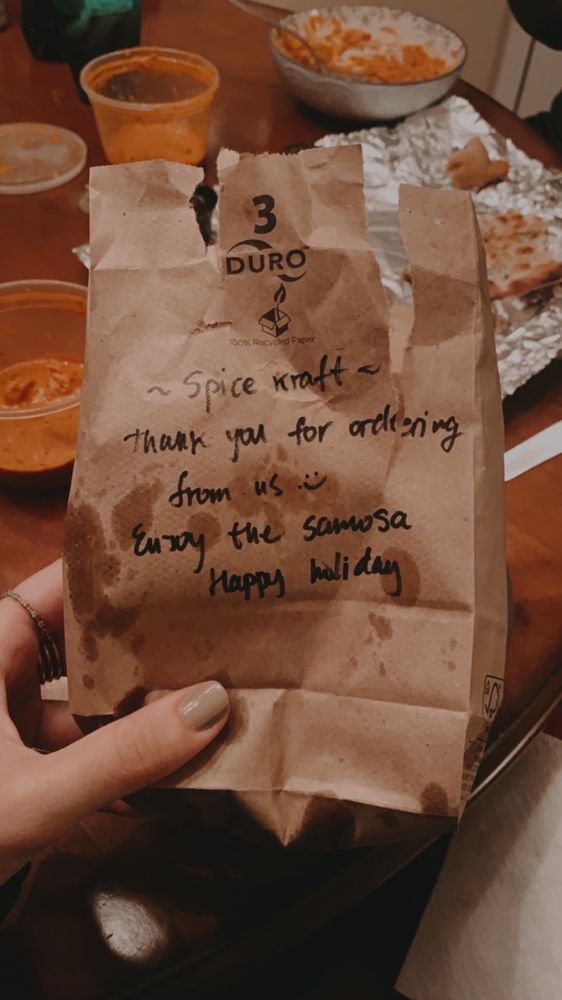 3
DURO
100% Recycled Paper
~ Spice Kraft ~
Thank you for ordering
from us :)
Enjoy the samosa
Happy holiday